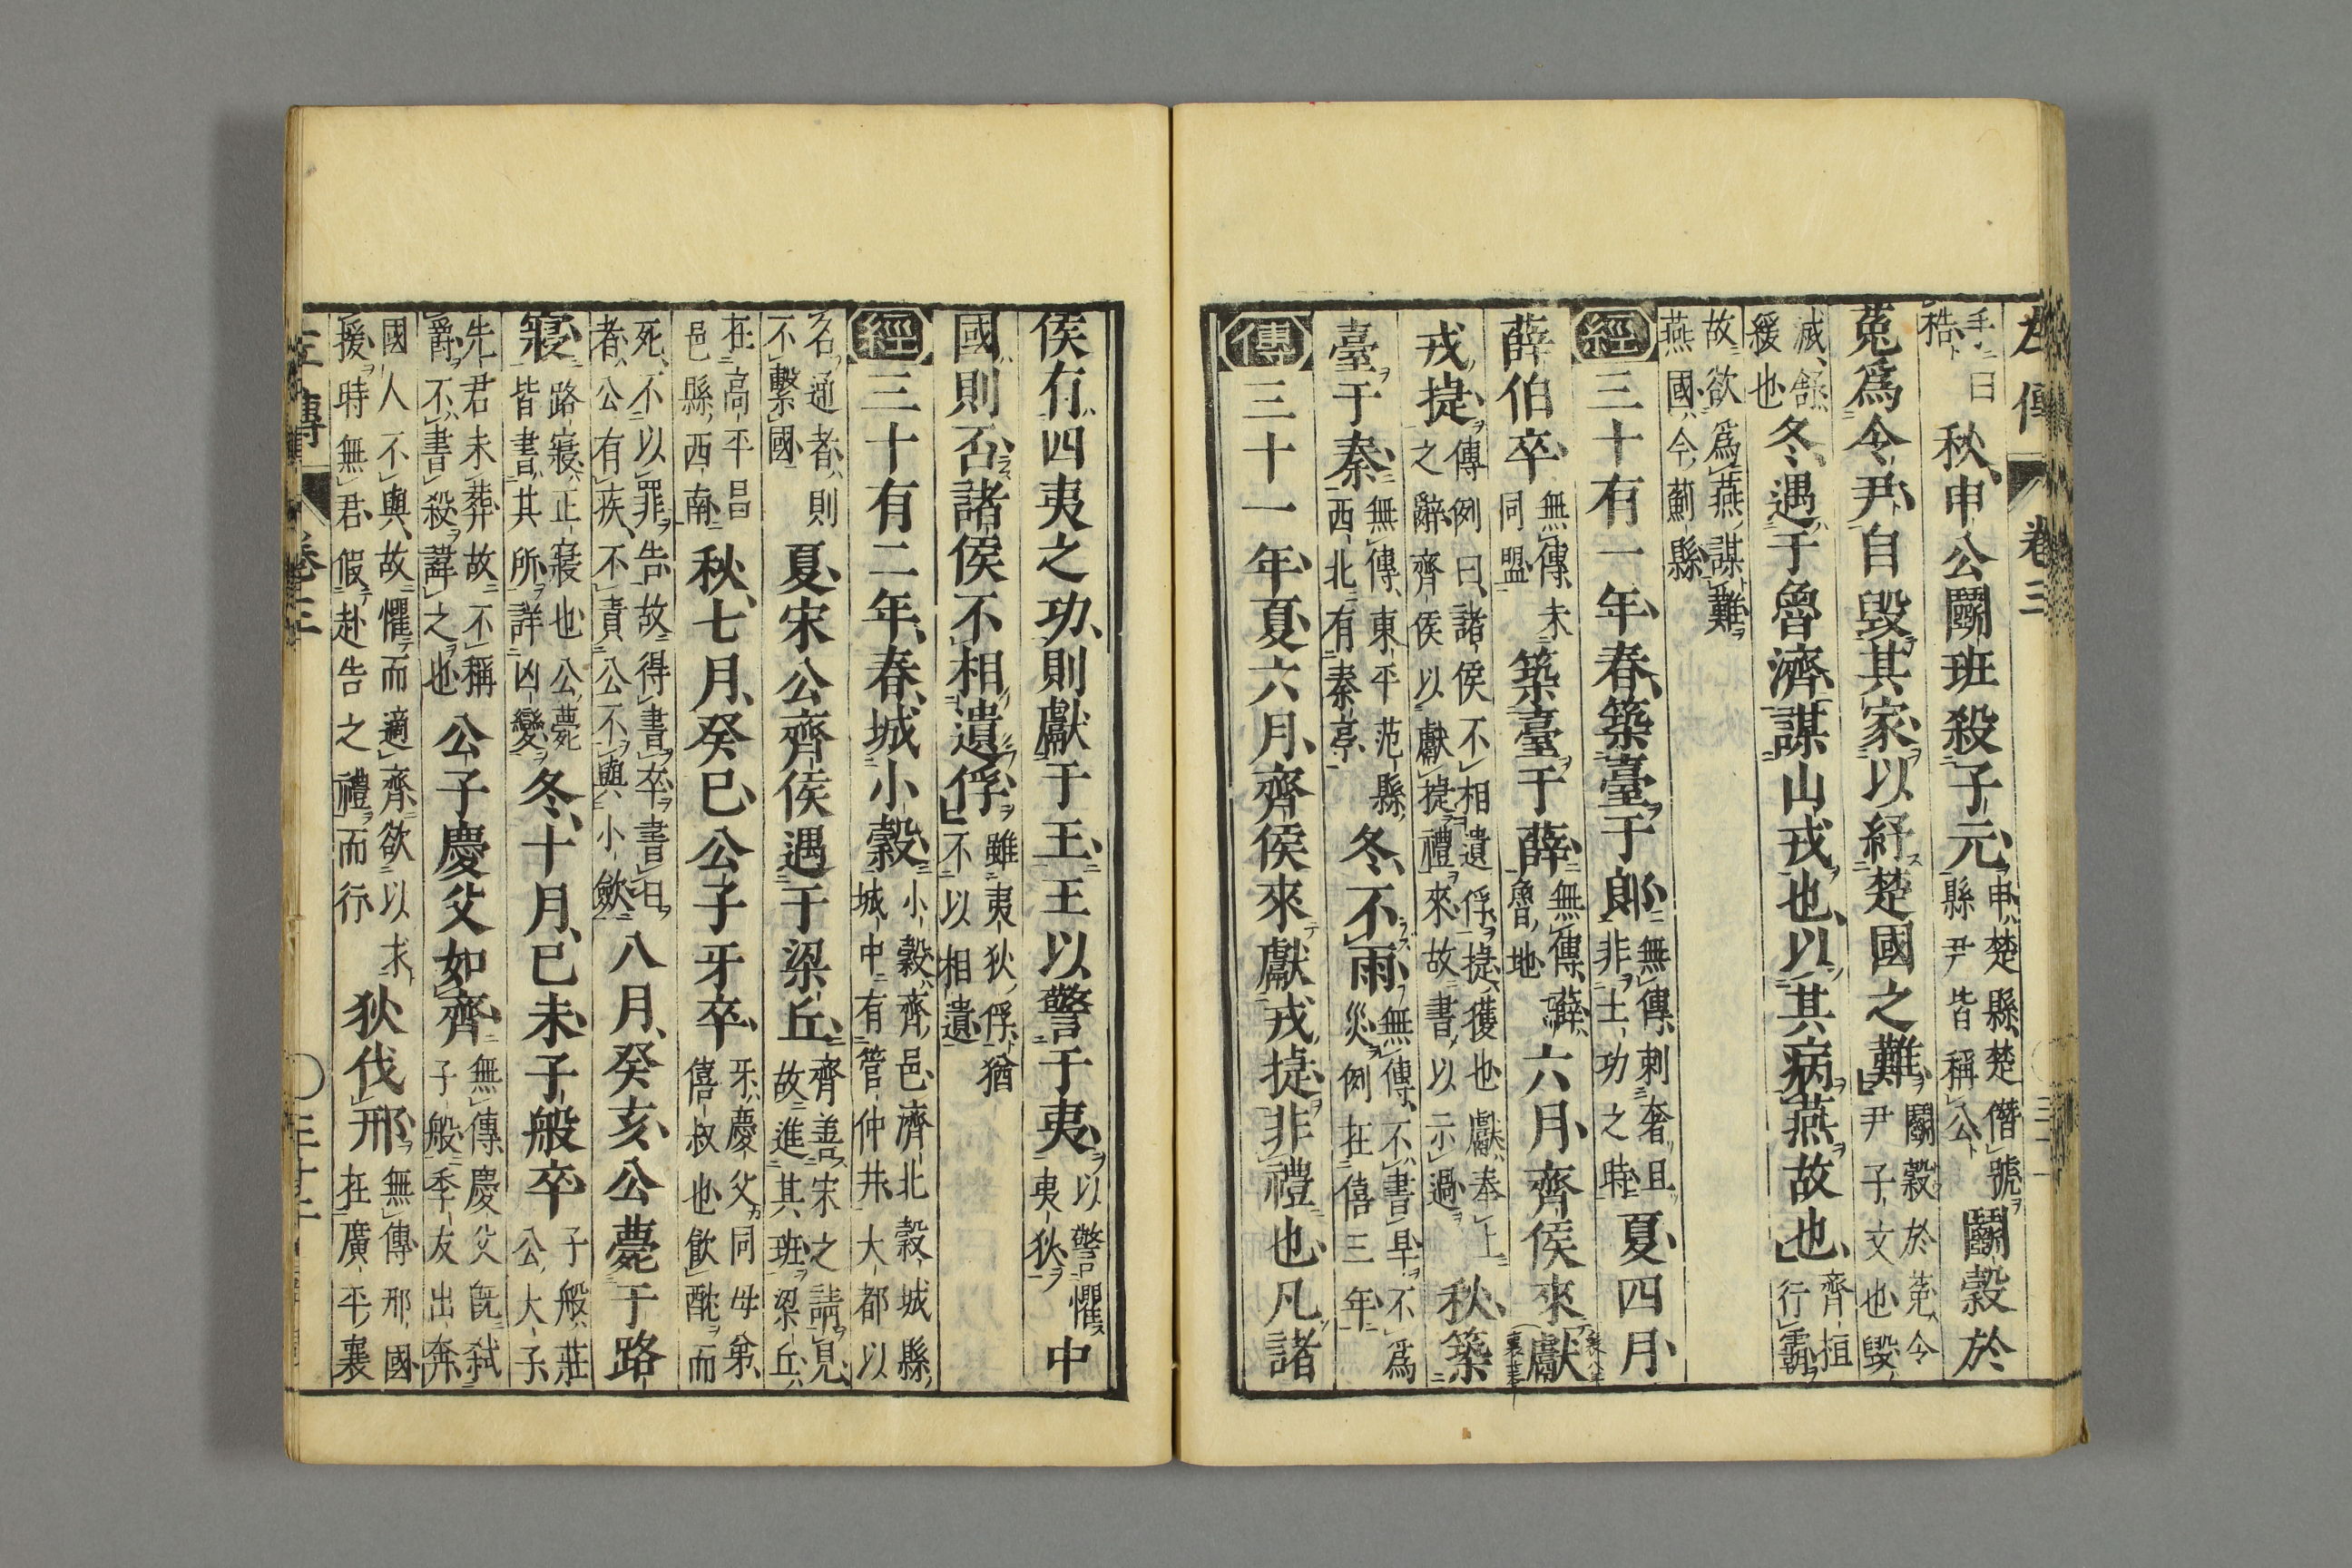 左傳 卷三
手曰梏 秋申公鬭班殺子元 申楚縣楚僭號縣尹皆稱公 鬭穀於
菟爲令尹自毀其家以紓楚國之難 鬭穀於菟令尹子文也毀
滅紓緩也 冬遇于魯濟謀山戎也以其病燕故也 齊桓行霸
故欲爲燕謀難燕國今薊縣
經 三十有一年春築臺于郎 無傳刺奢且非土功之時 夏四月
薛伯卒 無傳未同盟 築臺于薛 無傳薛魯地 六月齊侯來獻
戎捷 傳例曰諸侯不相遺俘捷獲也獻奉上之辭齊侯以獻捷禮來故書以示過 秋築
臺于秦 無傳東平范縣西北有秦亭 冬不雨 無傳不書旱不爲災例在僖三年
傳 三十一年夏六月齊侯來獻戎捷非禮也凡諸
侯有四夷之功則獻于王王以警于夷 以警懼夷狄 中
國則否諸侯不相遺俘 雖夷狄俘猶不以相遺
經 三十有二年春城小穀 小穀齊邑濟北穀城縣城中有管仲井大都以
名通者則不繫國 夏宋公齊侯遇于梁丘 齊善宋之請見故進其班梁丘
在高平昌邑縣西南 秋七月癸巳公子牙卒 牙慶父同母弟僖叔也飮酖而
死不以罪告故得書卒書日者公有疾不責公不與小斂 八月癸亥公薨于路
寢 路寢正寢也公薨皆書其所詳凶變 冬十月已未子般卒 子般莊公大子
先君未葬故不稱爵不書殺諱之也 公子慶父如齊 無傳慶父既弑子般季友出奔
國人不與故懼而適齊欲以求援時無君假赴告之禮而行 狄伐邢 無傳邢國在廣平襄
左傳 卷三